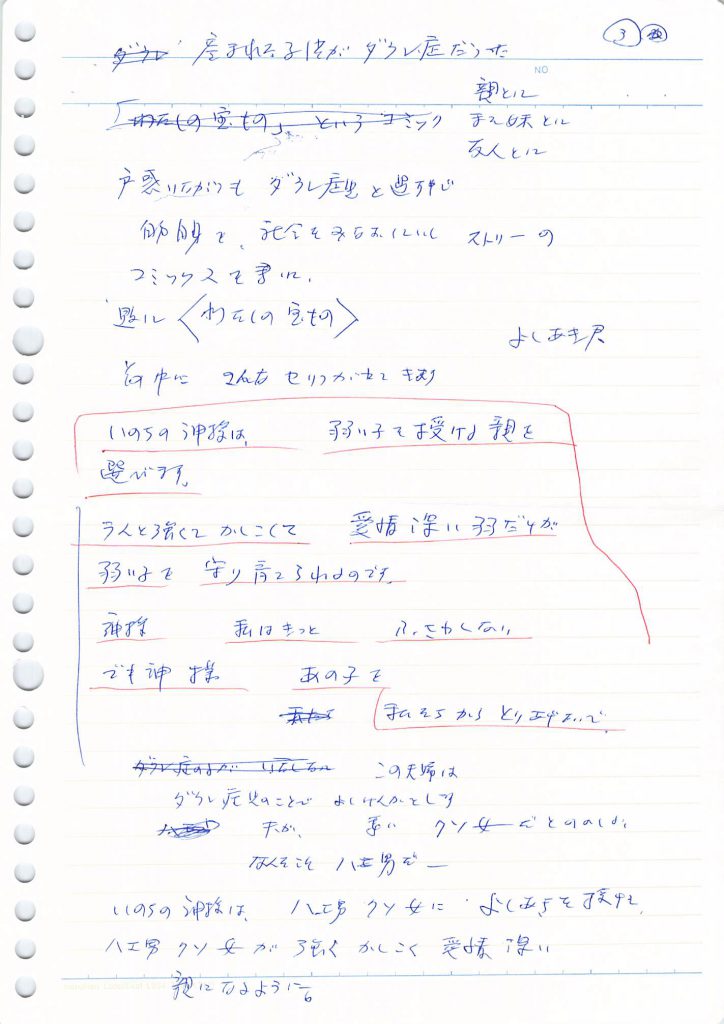 3
産まれる子供がダウン症だった
NO
親とに
「わたしの宝もの」というコミック
また妹とに
友人とに
戸惑いながらもダウン症児と過す中で
自分自身と、社会をみなおしていく ストリーの
コミックスを書いた。
題に〈わたしの宝もの〉
よしあき君
の中に こんなセリフがでてきます
いのちの神様は、 弱い子を授ける親を
選びます。
うんと強くて かしこくて 愛情深い 親だけが
弱い子を 守り育てられるのです。
神様 私はきっと ふさわしくない
でも神様 あの子を
私たち
私たちから とりあげないで
ダウン症の子が この夫婦は
ダウン症児のことで よくけんかをします
夫が、 妻に クソ女 だとののしり、
なんせ ハエ男だー
いのちの神様は、ハエ男 クソ女に よしあきを授けて、
ハエ男 クソ女が 強く かしこく 愛情深い
親になるように